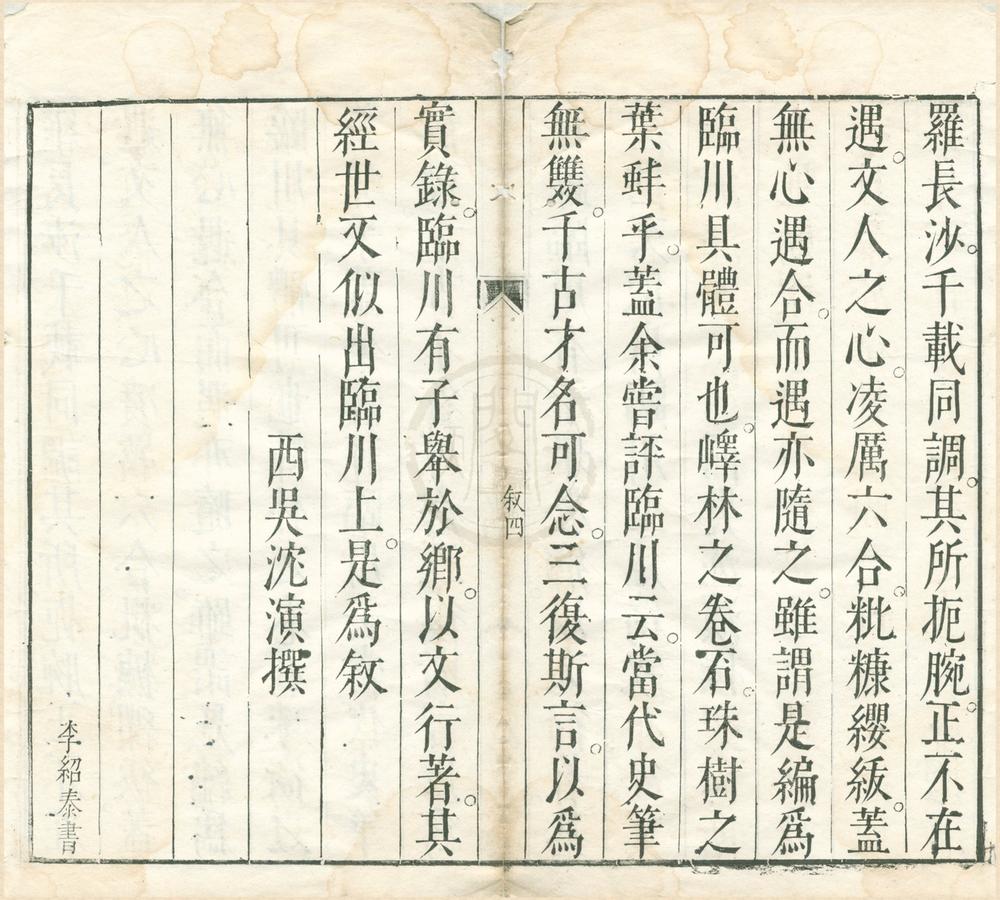 羅長沙。千載同調。其所扼腕。正不在
遇。文人之心。凌厲六合。粃糠纓紱。蓋
無心遇合。而遇亦隨之。雖謂是編爲
臨川具體可也。嶧林之卷石。珠樹之
葉蚌乎。蓋余嘗評臨川云。當代史筆
無雙。千古才名可念。三復斯言。以爲
敘四
實錄。臨川有子舉於鄉。以文行著。其
經世又似出臨川上。是爲敘
西吳沈演撰
李紹泰書